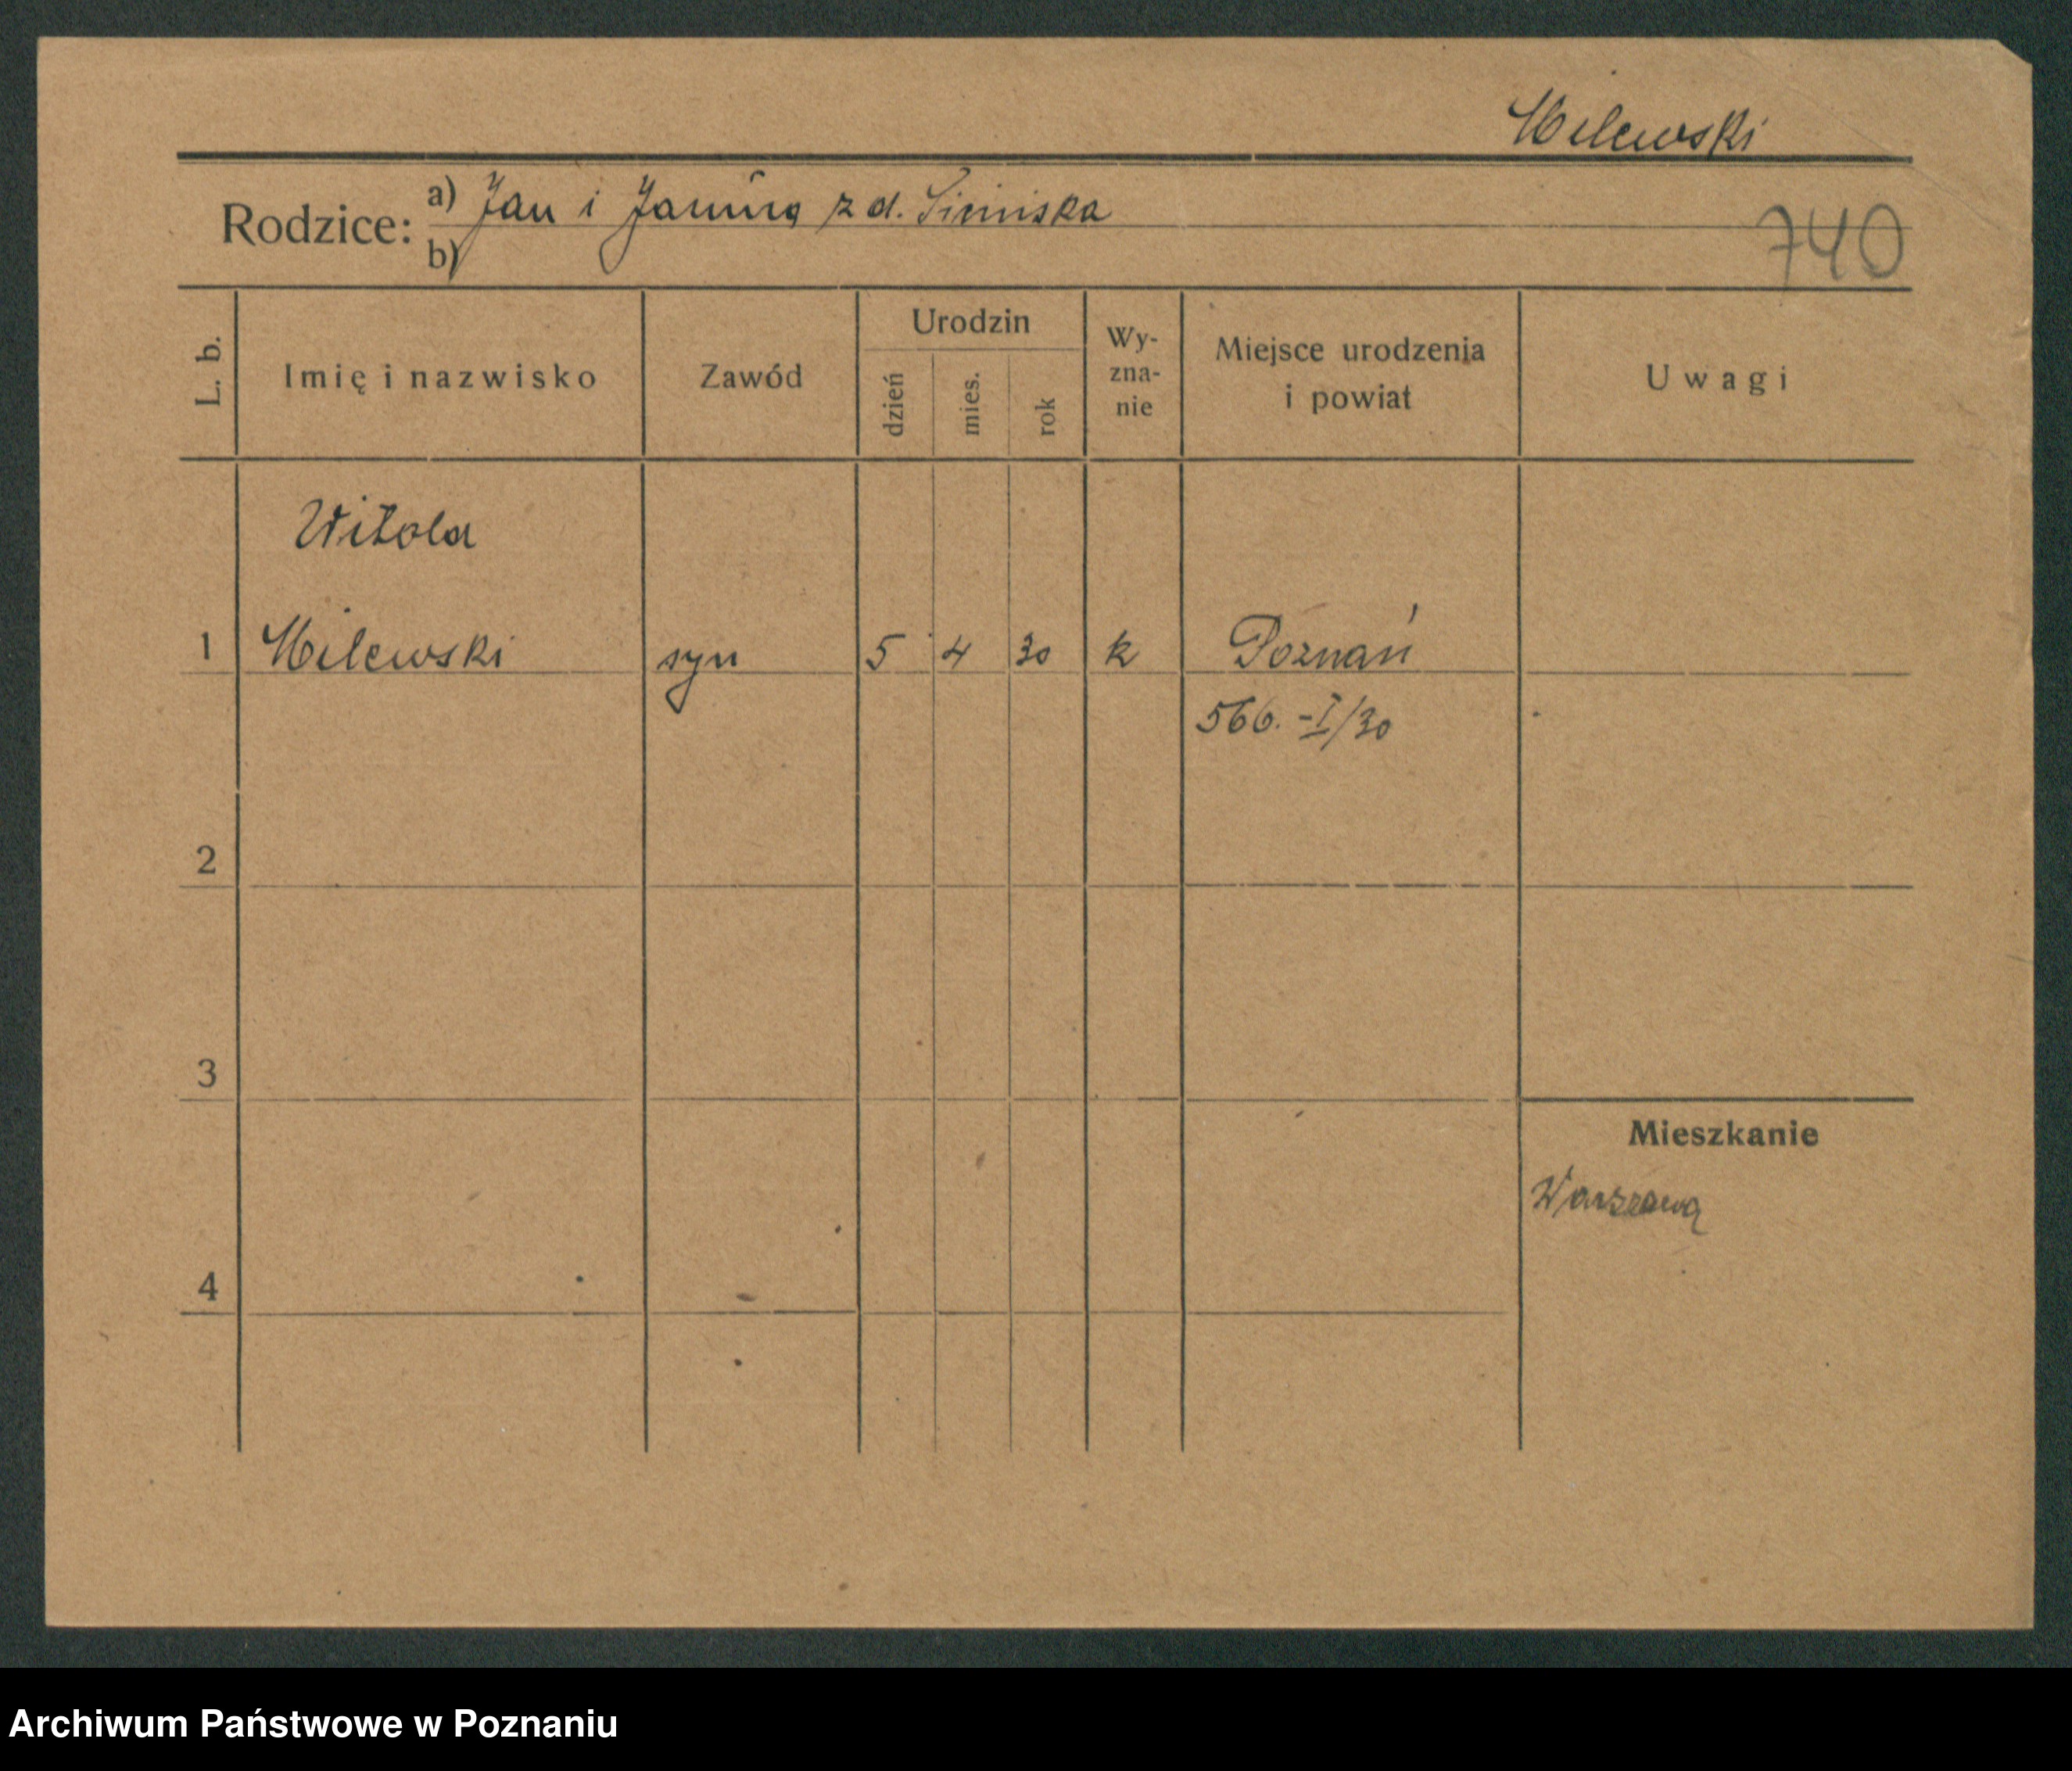 Milewski
Rodzice: a) Jan i Janina z d. Simińska
b)
740
L. b.
Imię i nazwisko
Zawód
Urodzin
dzień
mies.
rok
Wy-
zna-
nie
Miejsce urodzenia
i powiat
Uwagi
Witold
1 Milewski syn 5 4 30 k Poznań
566.-I/30
2
3
Mieszkanie
Warszawa
4
Archiwum Państwowe w Poznaniu